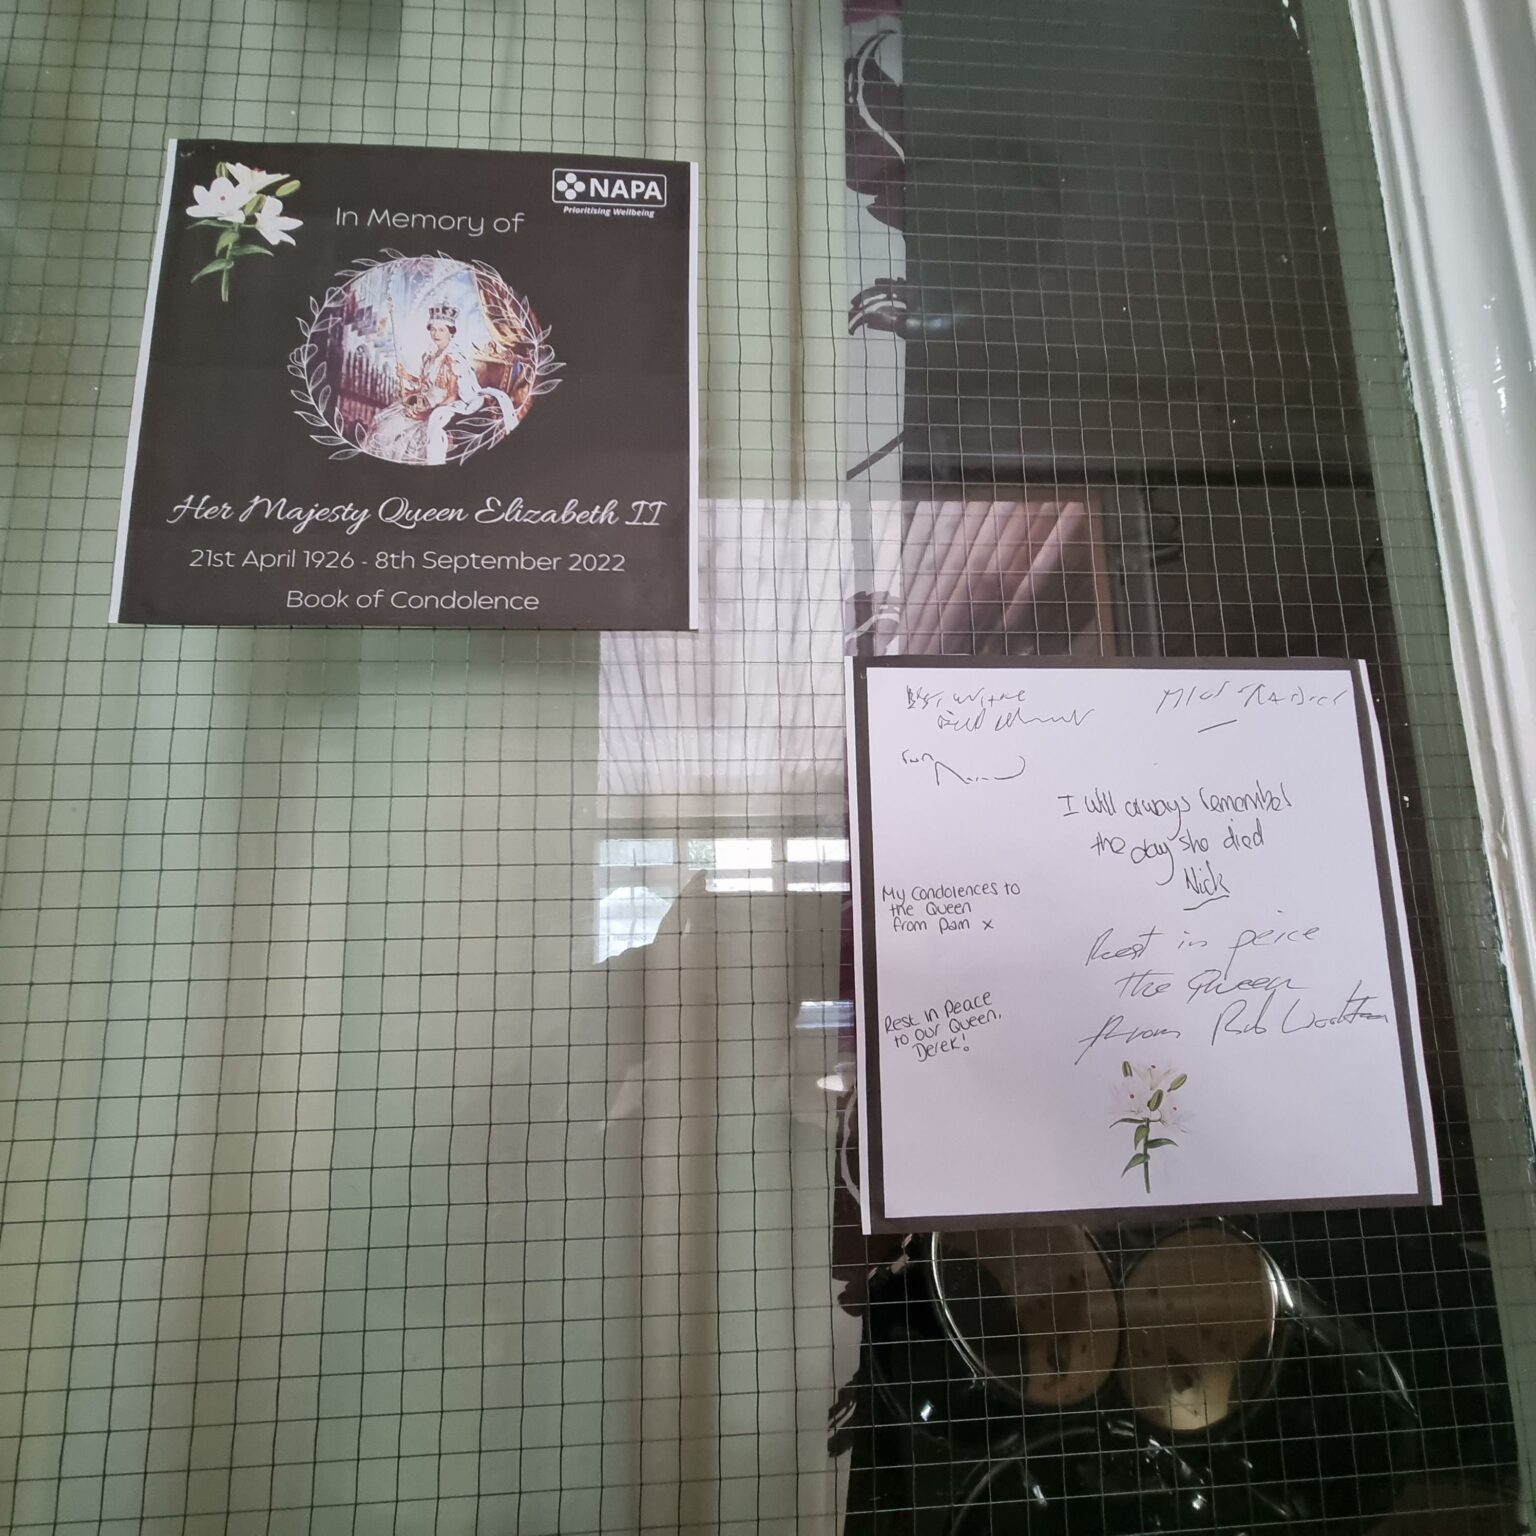 In Memory of
NAPA
Prioritising Wellbeing
Her Majesty Queen Elizabeth II
21st April 1926 - 8th September 2022
Book of Condolence
I will always remember
the day she died
Nick
My Condolences to
the Queen
from Pam x
Rest in peice
the Queen
from Rob
Rest in Peace
to our Queen.
Derek!